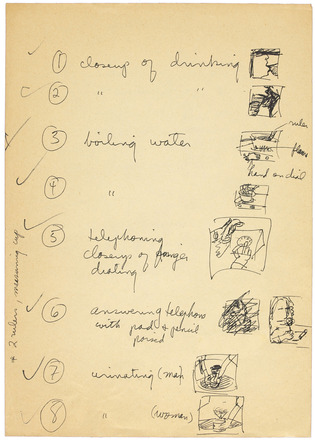 1 closeup of drinking
2 " "
3 boiling water
ruler
hand on dial
4 "
5 telephoning
closeup of finger
dialing
6 answering telephone
with pad & pencil
poised
7 urinating (man
8 " (woman)
+ 2 rulers, measuring cup